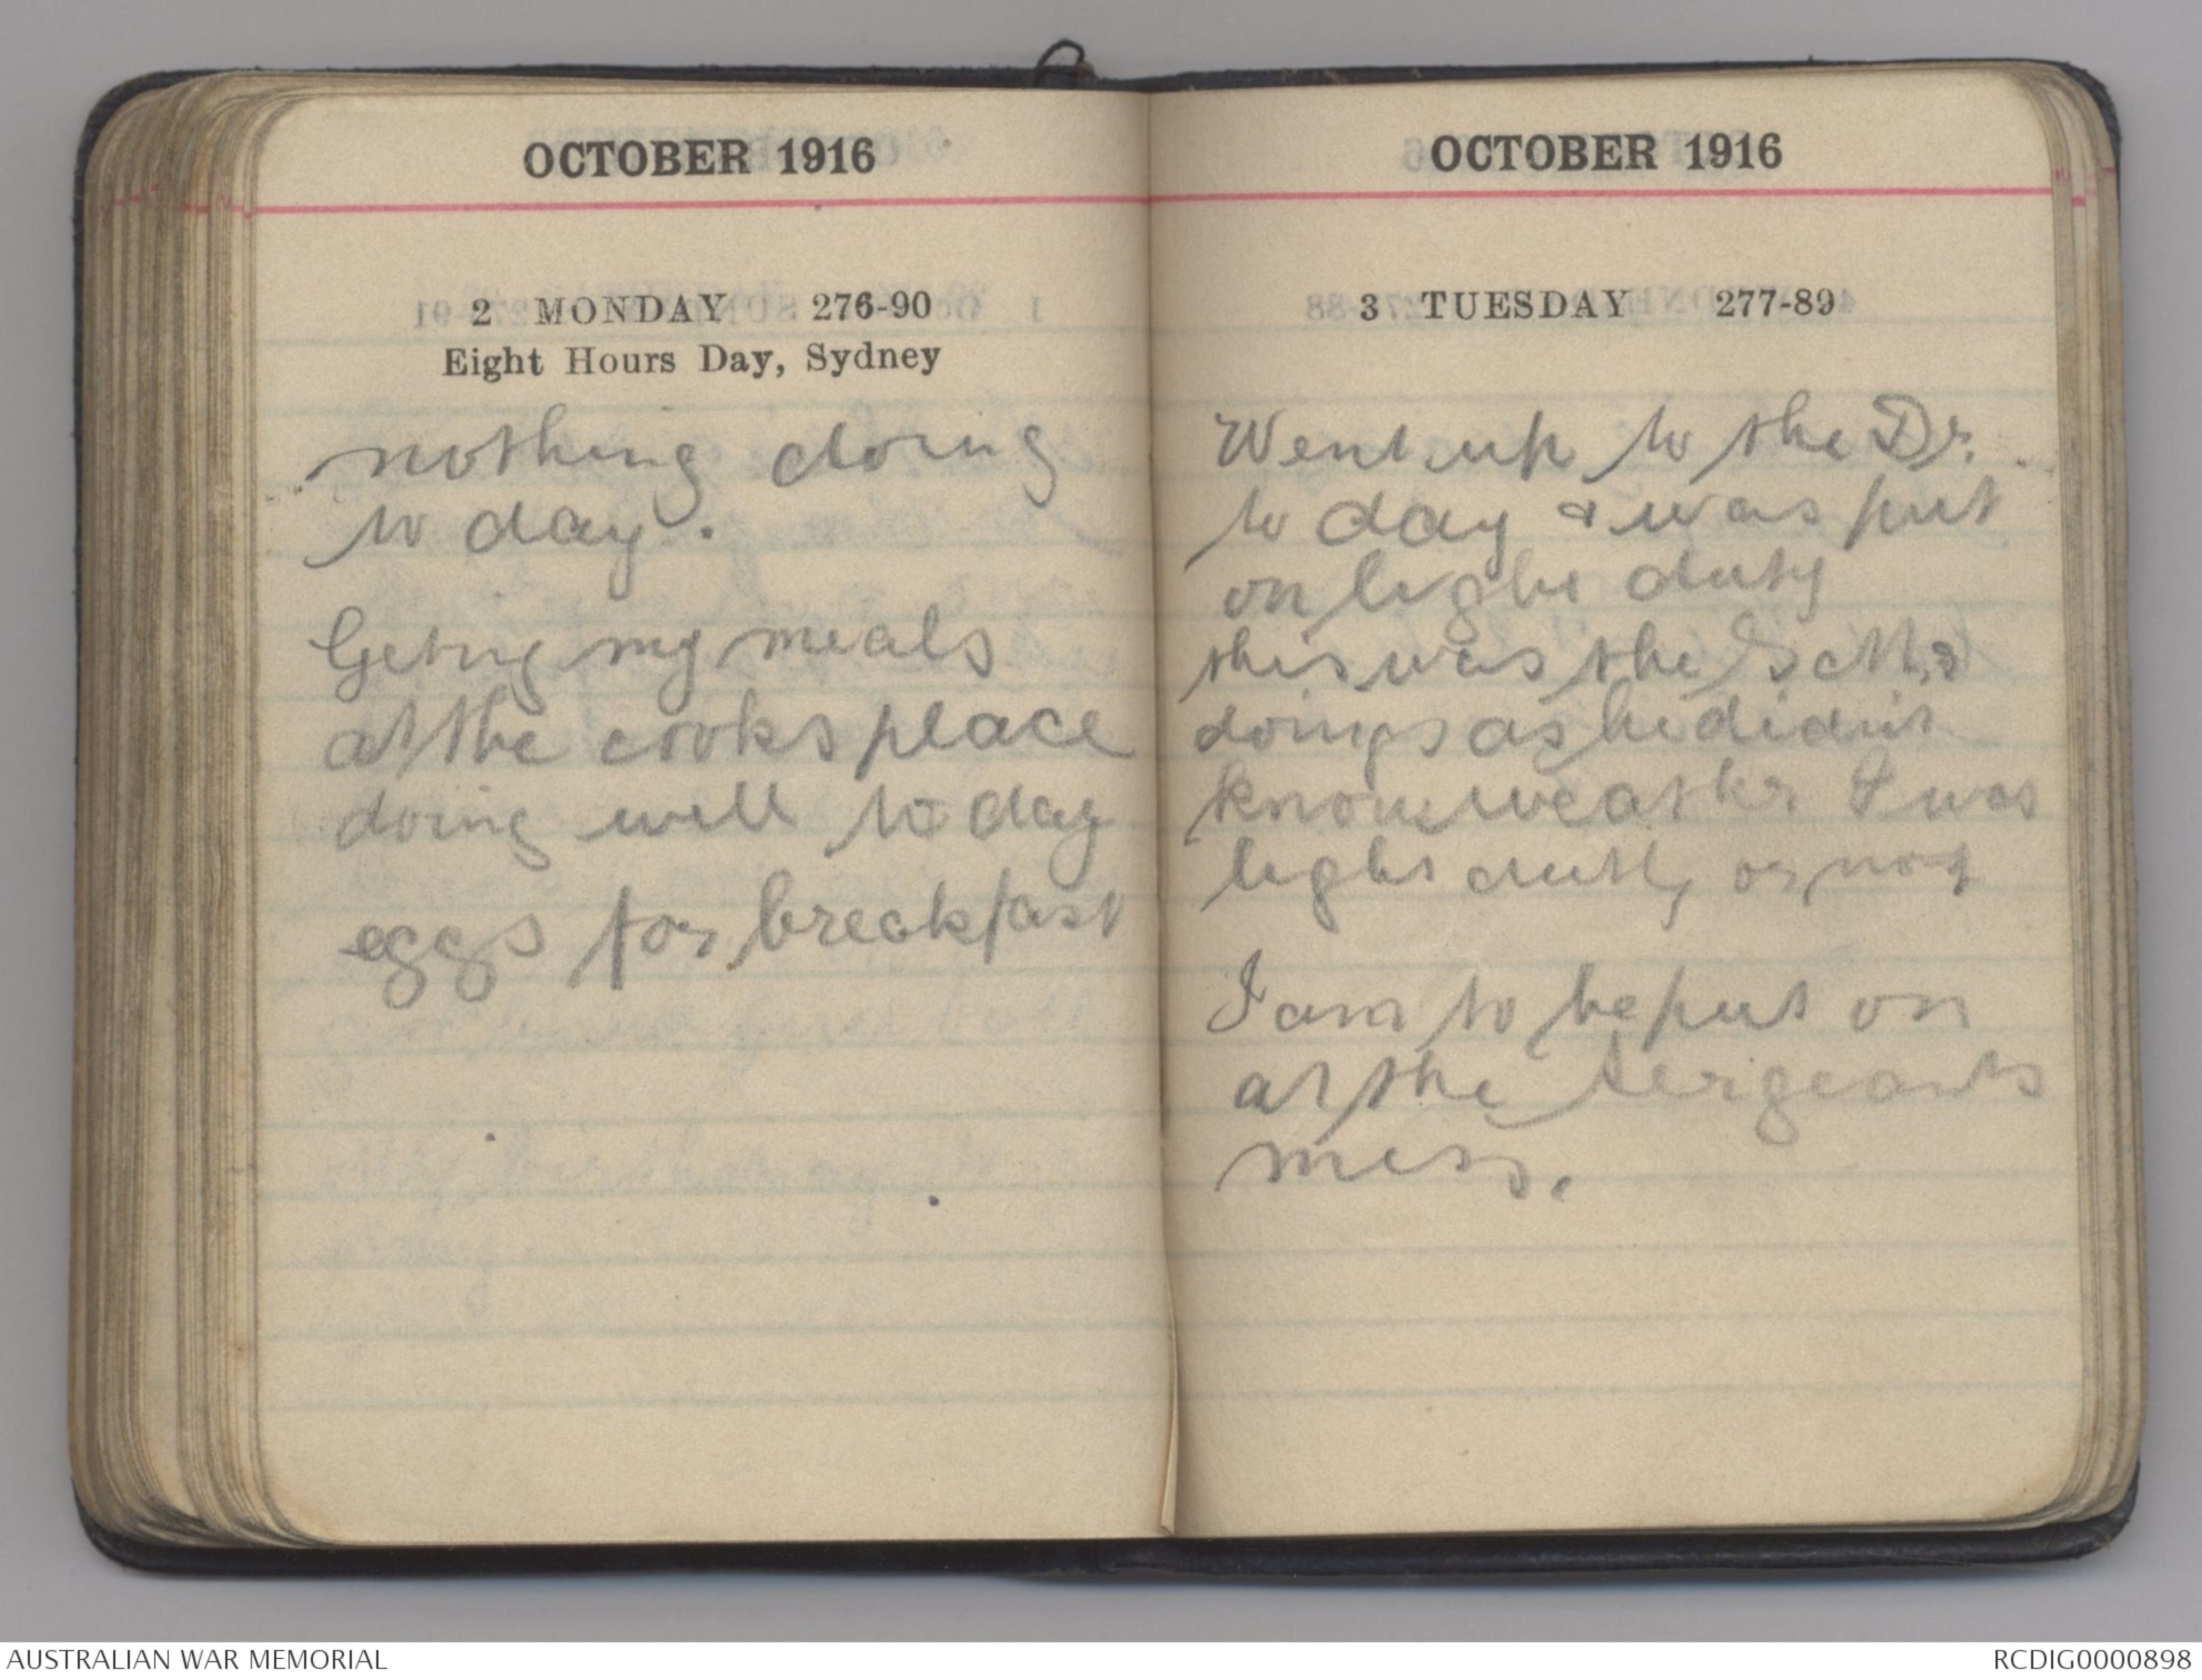 OCTOBER 1916
2 MONDAY 276-90
Eight Hours Day, Sydney
nothing doing
to day.
Geting my meals
at the cooks place
doing well to day
eggs for breakfast
OCTOBER 1916
3 TUESDAY 277-89
Went up to the Dr.
to day & was put
on light duty
this was the
doings as he didint
know weather I was
light duty or not
I am to be put on
at the sergeants
mess.
AUSTRALIAN WAR MEMORIAL
RCDIG0000898